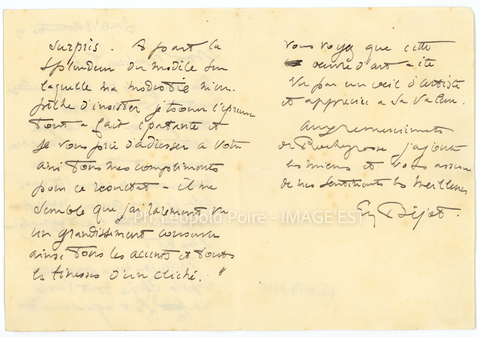 surpris. A part la
splendeur du modèle sur
laquelle ma modestie m'em
pêche d'insister je trouve l'épreuve
tout a fait épatante et
je vous prie d'adresser a votre
ami tous mes compliments
pour ce résultat - il me
semble que j'ai rarement vu
un grandissement conserver
ainsi tous les accents et toutes
les finesses d'un cliché. "
Vous voyez que cette
œuvre d'art a été
vu par un œil d'artiste
et appréciée a sa valeur.
Aux remerciements
de j'ajoute
les miens et vous assure
de mes sentiments les meilleurs
Léopold Poiré - IMAGE EST